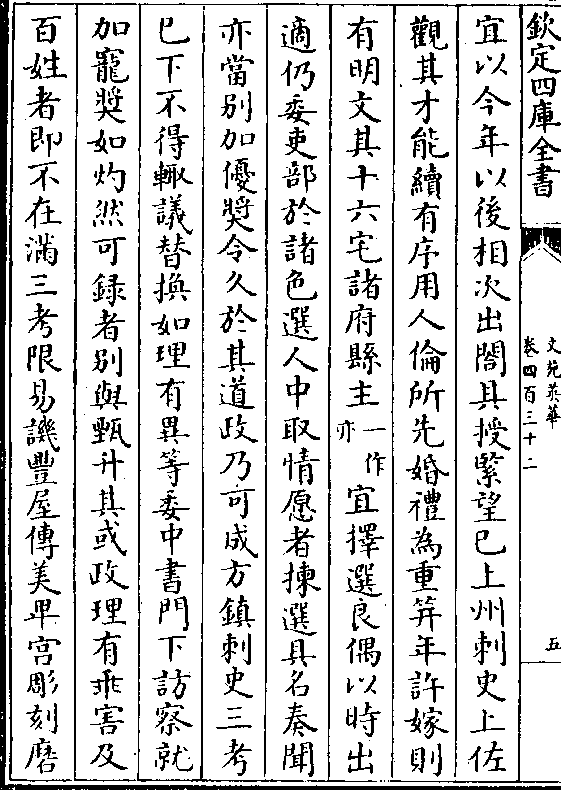 欽定四庫全書
文苑英華
卷四百三十二
五
宜以今年以後相次出閤其授緊望已上州刺史上佐
觀其才能續有序用人倫所先婚禮為重笄年許嫁則
有明文其十六宅諸府縣主一作亦宜擇選良偶以時出
適仍委吏部於諸色選人中取情愿者揀選具名奏聞
亦當别加優奬令久於其道政乃可成方鎮刺史三考
已下不得輙議替換如理有異等委中書門下訪察就
加寵奬如灼然可録者别與甄升其或政理有乖害及
百姓者即不在滿三考限易譏豐屋傳美卑宫彫刻磨